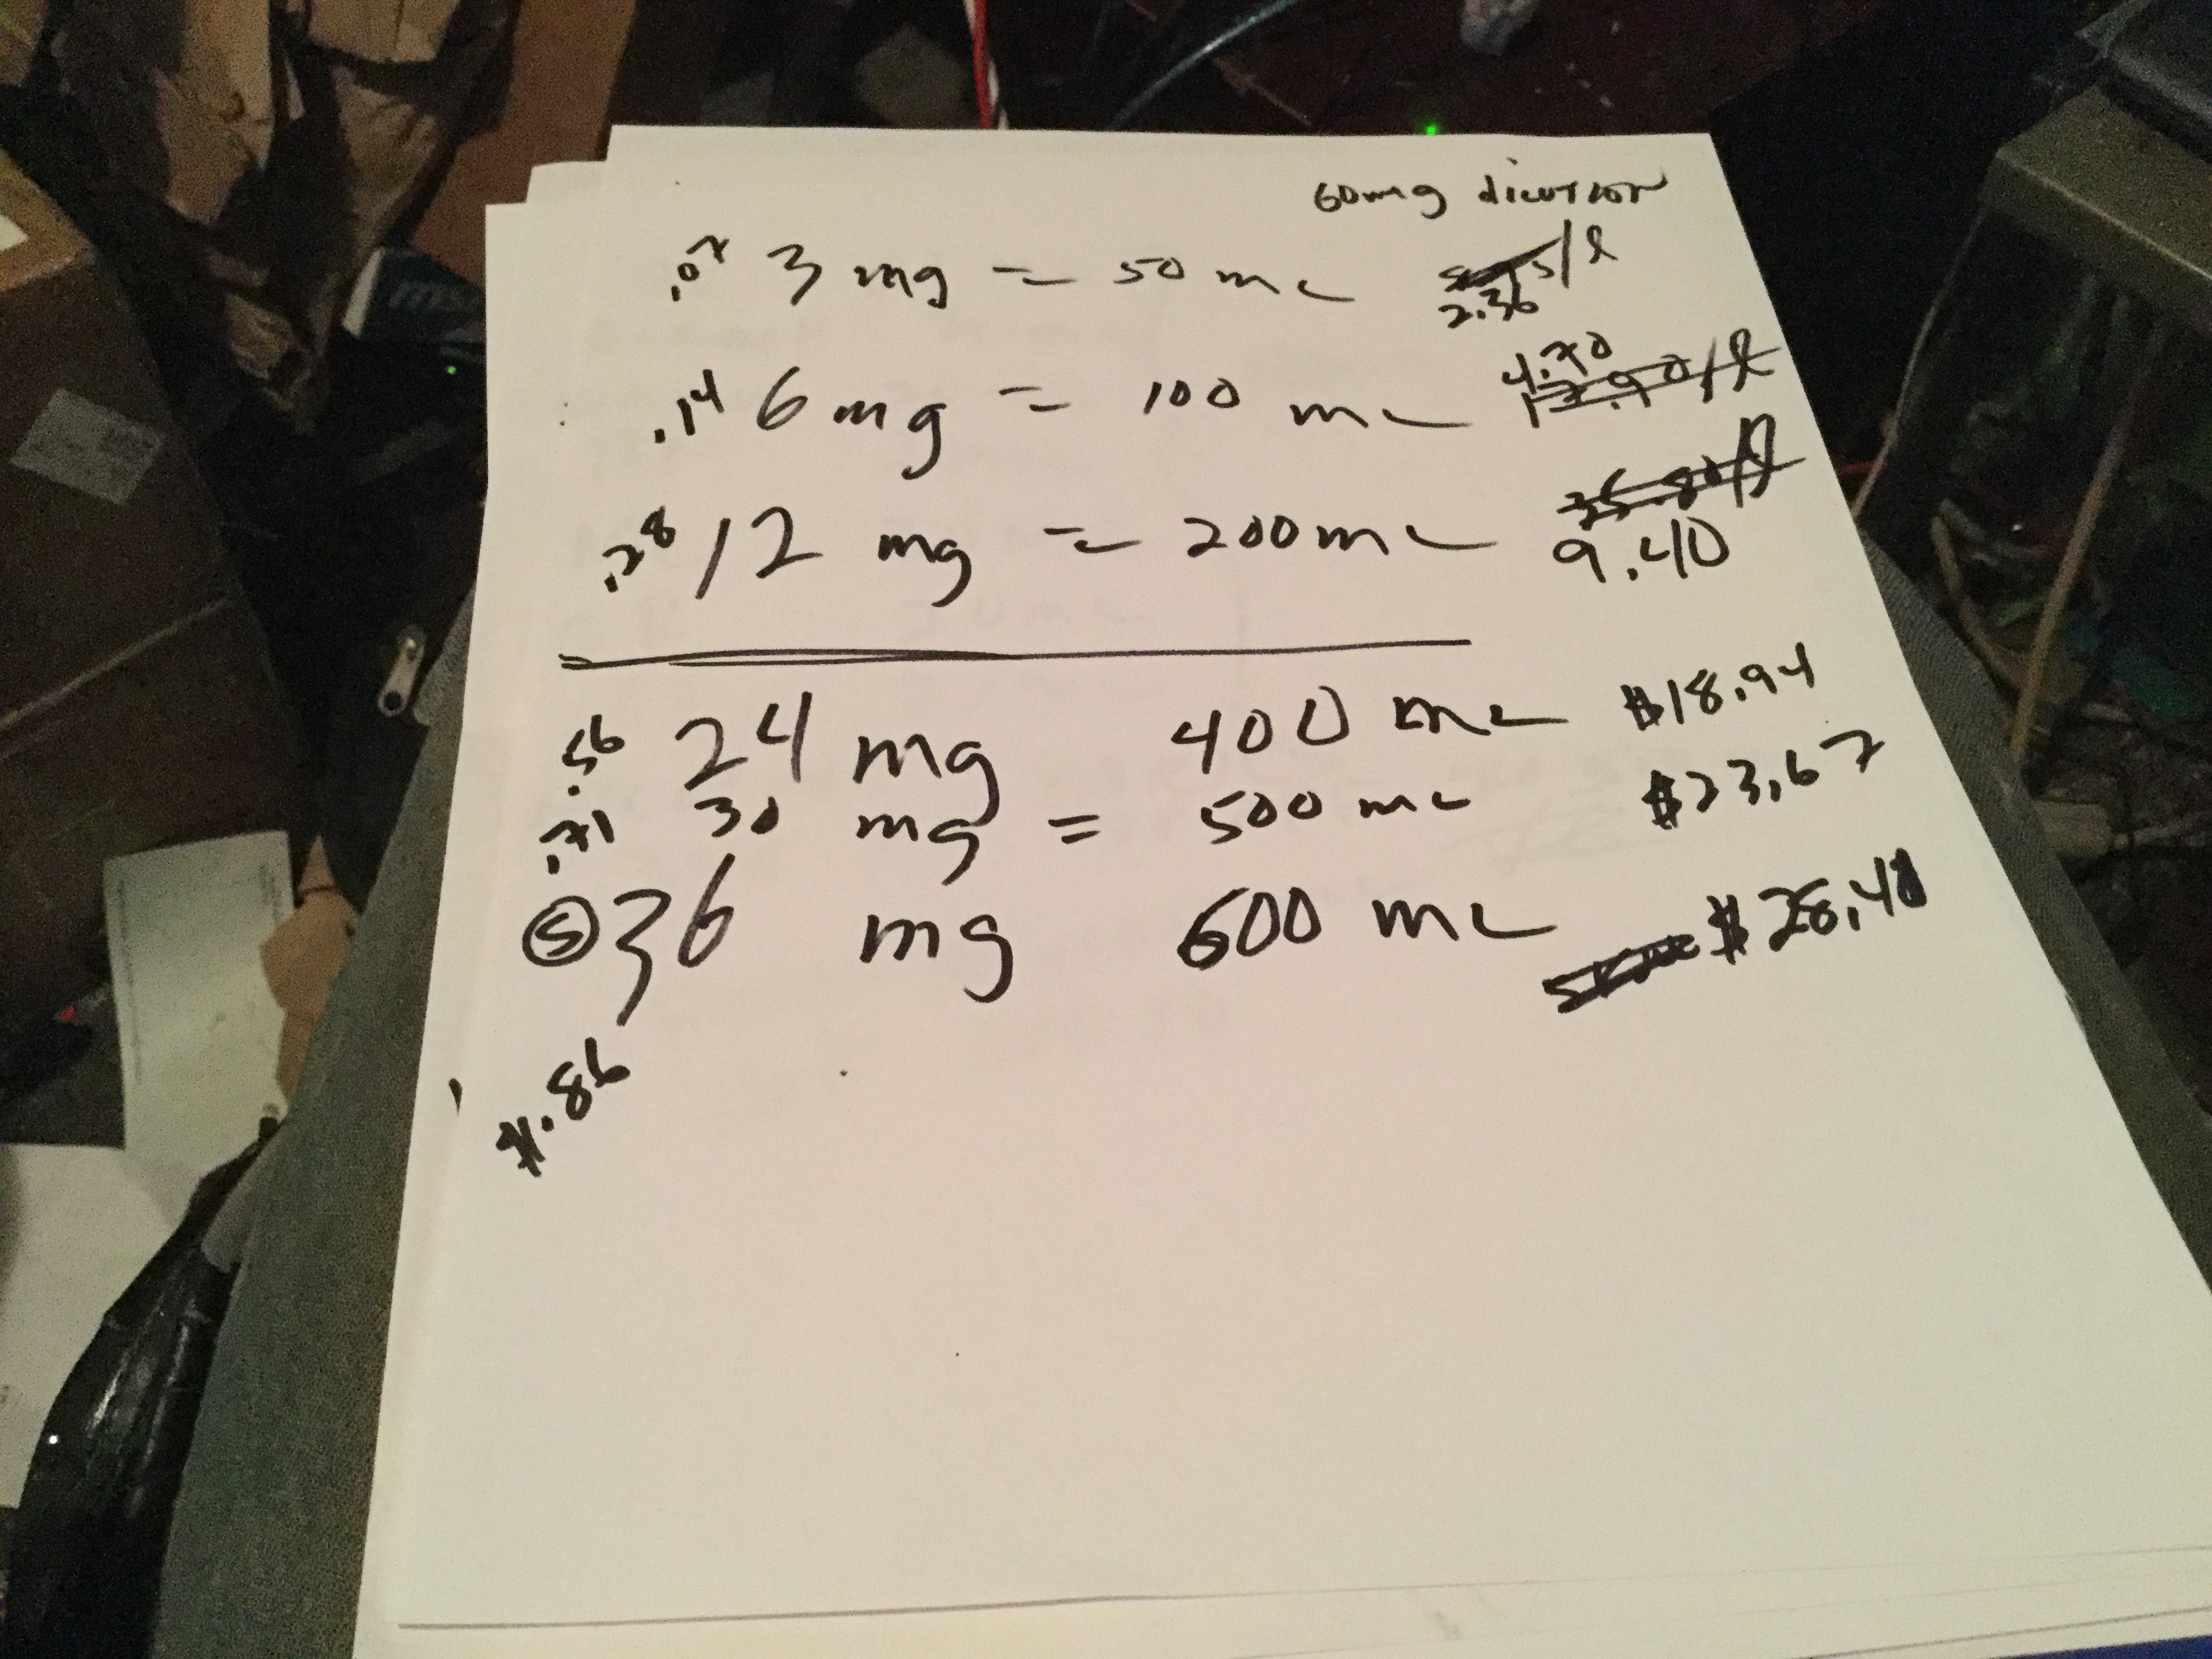 60mg dilution
.07 3 mg = 50 mL /l
2.36
4.70
.14 6 mg = 100 mL 17.90/l
.28 12 mg = 200 mL 35.80/l
9.40
.56 24 mg 400 mL $18.94
.71 30 mg = 500 mL $23.67
(S) 36 mg 600 mL $28.40
$.86
ms